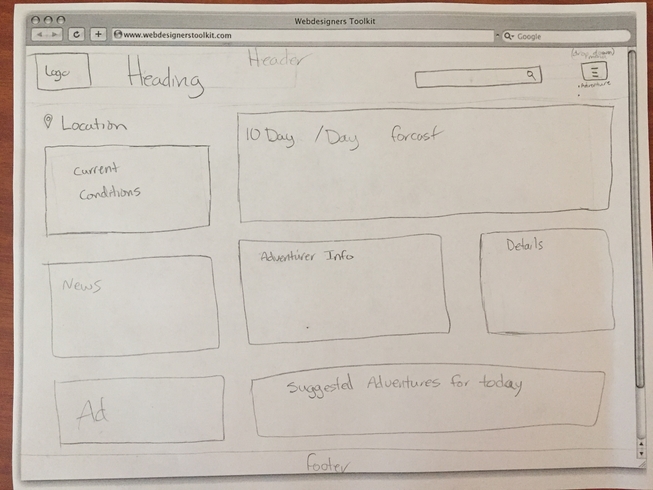 Webdesigners Toolkit
www.webdesignerstoolkit.com
Google
Logo
Heading
Header
(drop down)
Adventure
Location
10 Day / Day forcast
Current
Conditions
News
Adventurer Info
Details
Ad
Suggested Adventures for today
footer